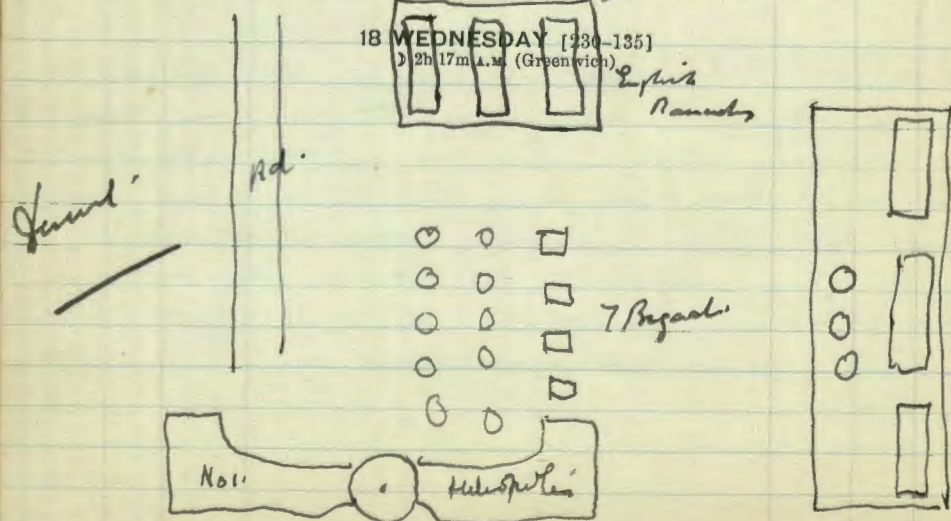 18 WEDNESDAY [230–135]
☽ 2h 17m A.M. (Greenwich)
English
Rd.
7 Brigade.
No 1.
Heliopolis